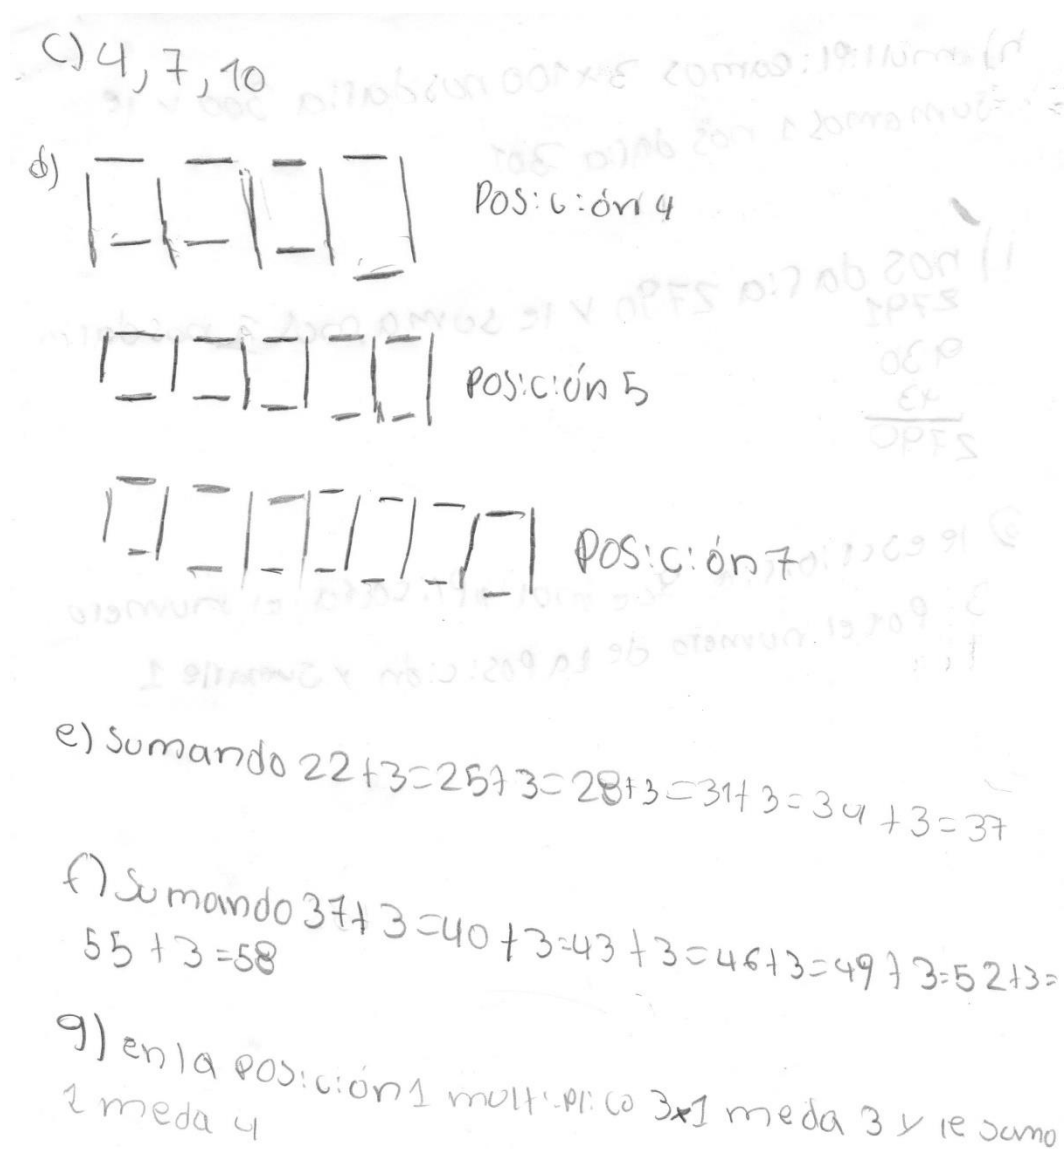 c) 4, 7, 10
d)
Posición 4
Posición 5
Posición 7
e) Sumando 22+3=25+3=28+3=31+3=34+3=37
f) Sumando 37+3=40+3=43+3=46+3=49+3=52+3=
55+3=58
g) en la posición 1 multiplico 3x1 me da 3 y le sumo
1 me da 4